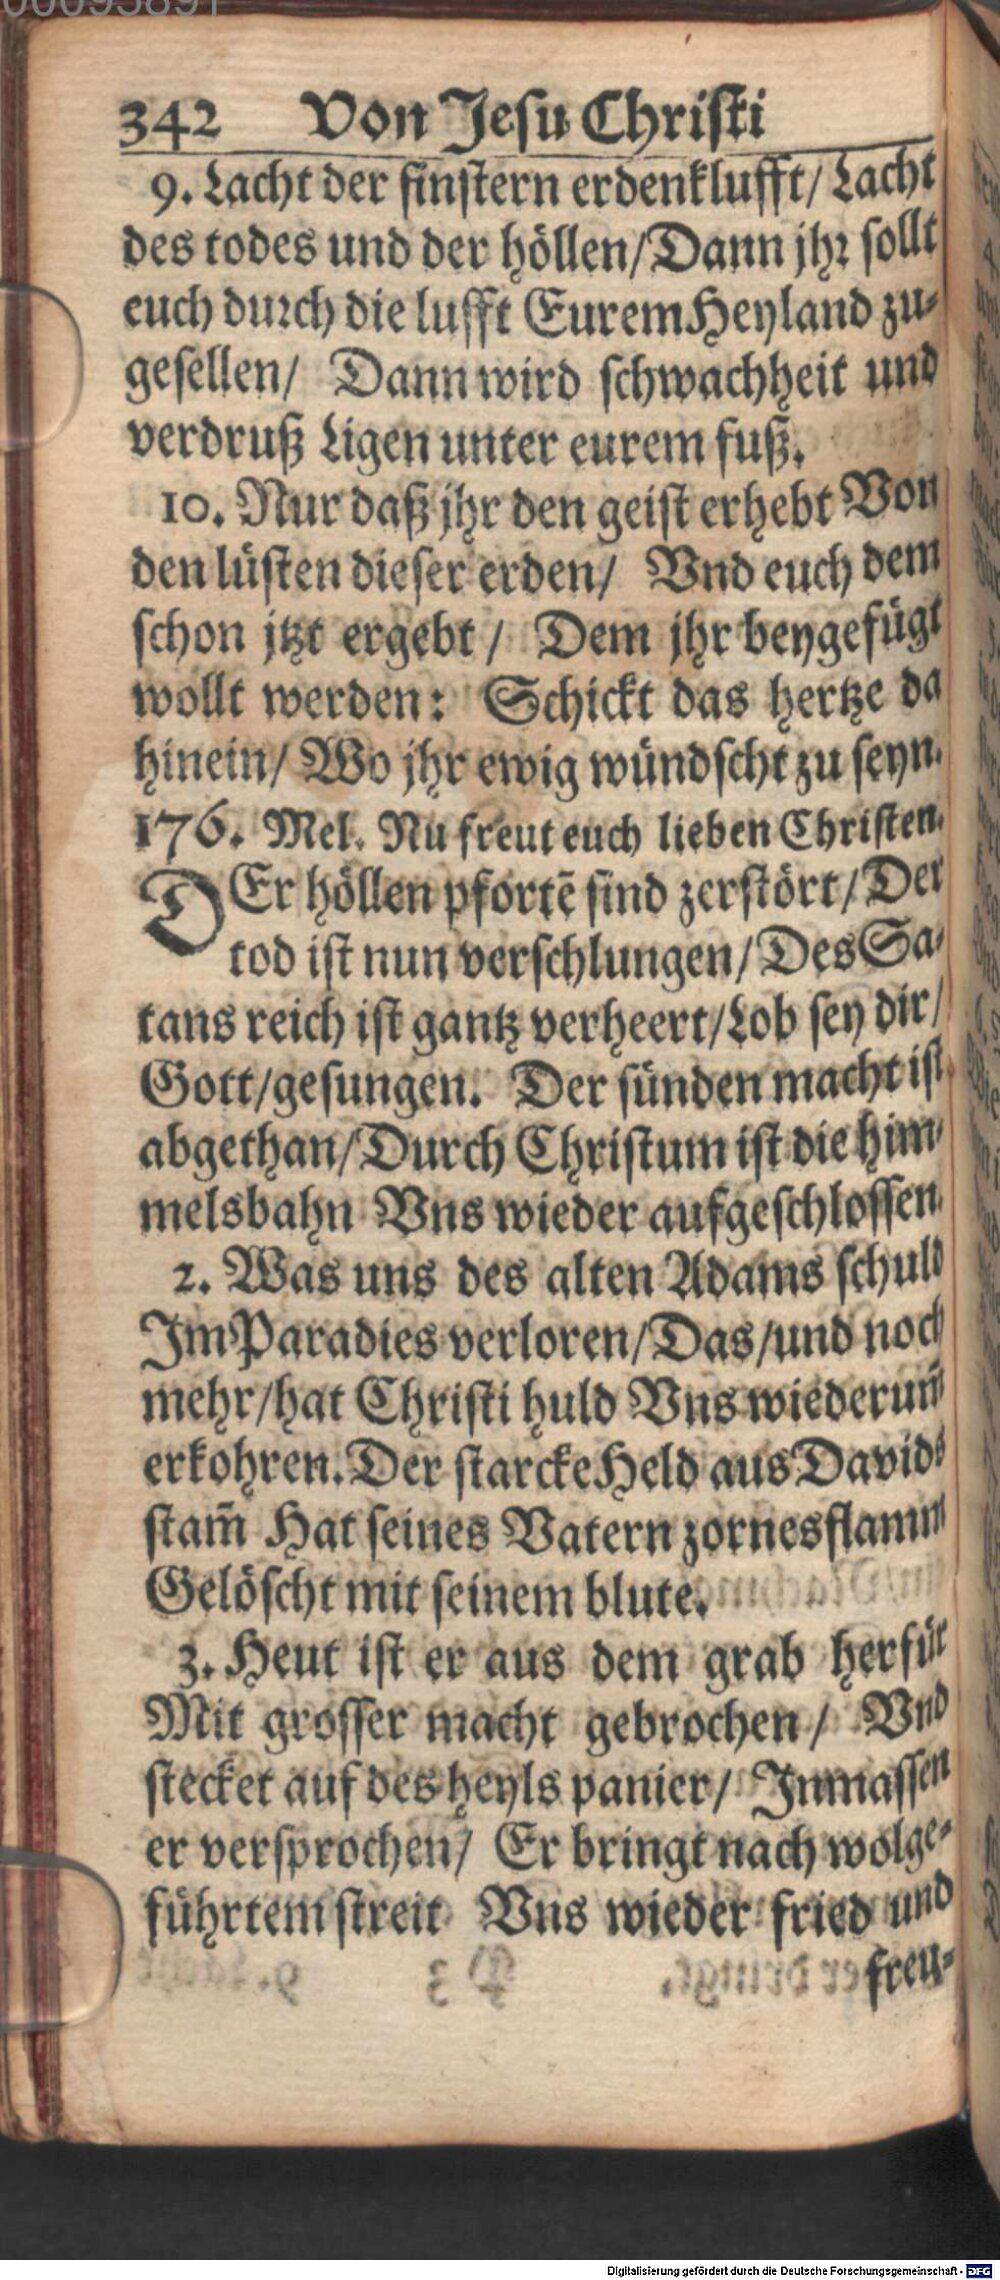 00095891
342 Von Jesu Christi
9. Lacht der finstern erdenklufft/ Lacht
des todes und der höllen/ Dann jhr sollt
euch durch die lufft Eurem Heyland zu-
gesellen/ Dann wird schwachheit und
verdruß Ligen unter eurem fuß.
10. Nur daß jhr den geist erhebt Von
den lüsten dieser erden/ Vnd euch dem
schon jtzt ergebt/ Dem jhr beygefügt
wollt werden: Schickt das hertze da
hinein/ Wo jhr ewig wündscht zu seyn.
176. Mel. Nu freut euch lieben Christen.
DEr höllen pfortē sind zerstört/ Der
tod ist nun verschlungen/ Des Sa-
tans reich ist gantz verheert/ Lob sey dir/
Gott/ gesungen. Der sünden macht ist
abgethan/ Durch Christum ist die him-
melsbahn Vns wieder aufgeschlossen.
2. Was uns des alten Adams schuld
Im Paradies verloren/ Das/ und noch
mehr/ hat Christi huld Vns wiederum̄
erkohren. Der starcke Held aus Davids
stam̄ Hat seines Vatern zornesflamm
Gelöscht mit seinem blute.
3. Heut ist er aus dem grab herfür
Mit grosser macht gebrochen/ Vnd
stecket auf des heyls panier/ Inmassen
er versprochen/ Er bringt nach wolge-
führtem streit Vns wieder fried und
freu-
Digitalisierung gefördert durch die Deutsche Forschungsgemeinschaft - DFG